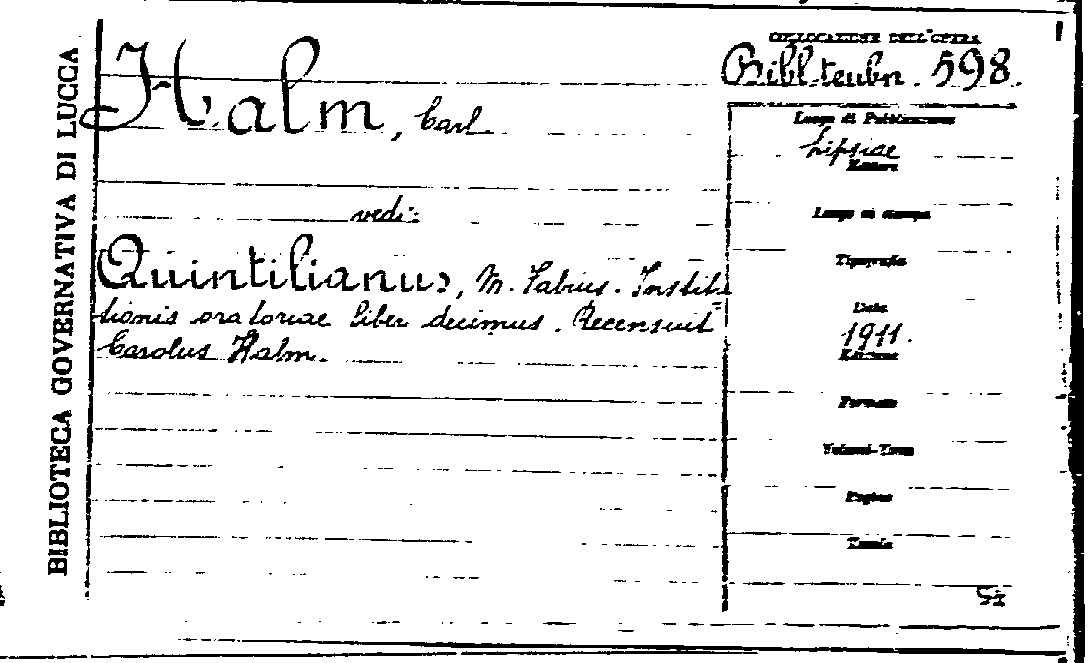 BIBLIOTECA GOVERNATIVA DI LUCCA
Halm, Carl.
vedi:
Quintilianus, M. Fabius. Institu=
tionis oratoriae liber decimus. Recensuit
Carolus Halm.
COLLOCAZIONE DELL'OPERA
Bibl. teubn. 598.
Luogo di Pubblicazione
Lipsiae
Editore
Luogo di stampa
Tipografia
Data
1911.
Edizione
Formato
Volumi-Tomo
Pagine